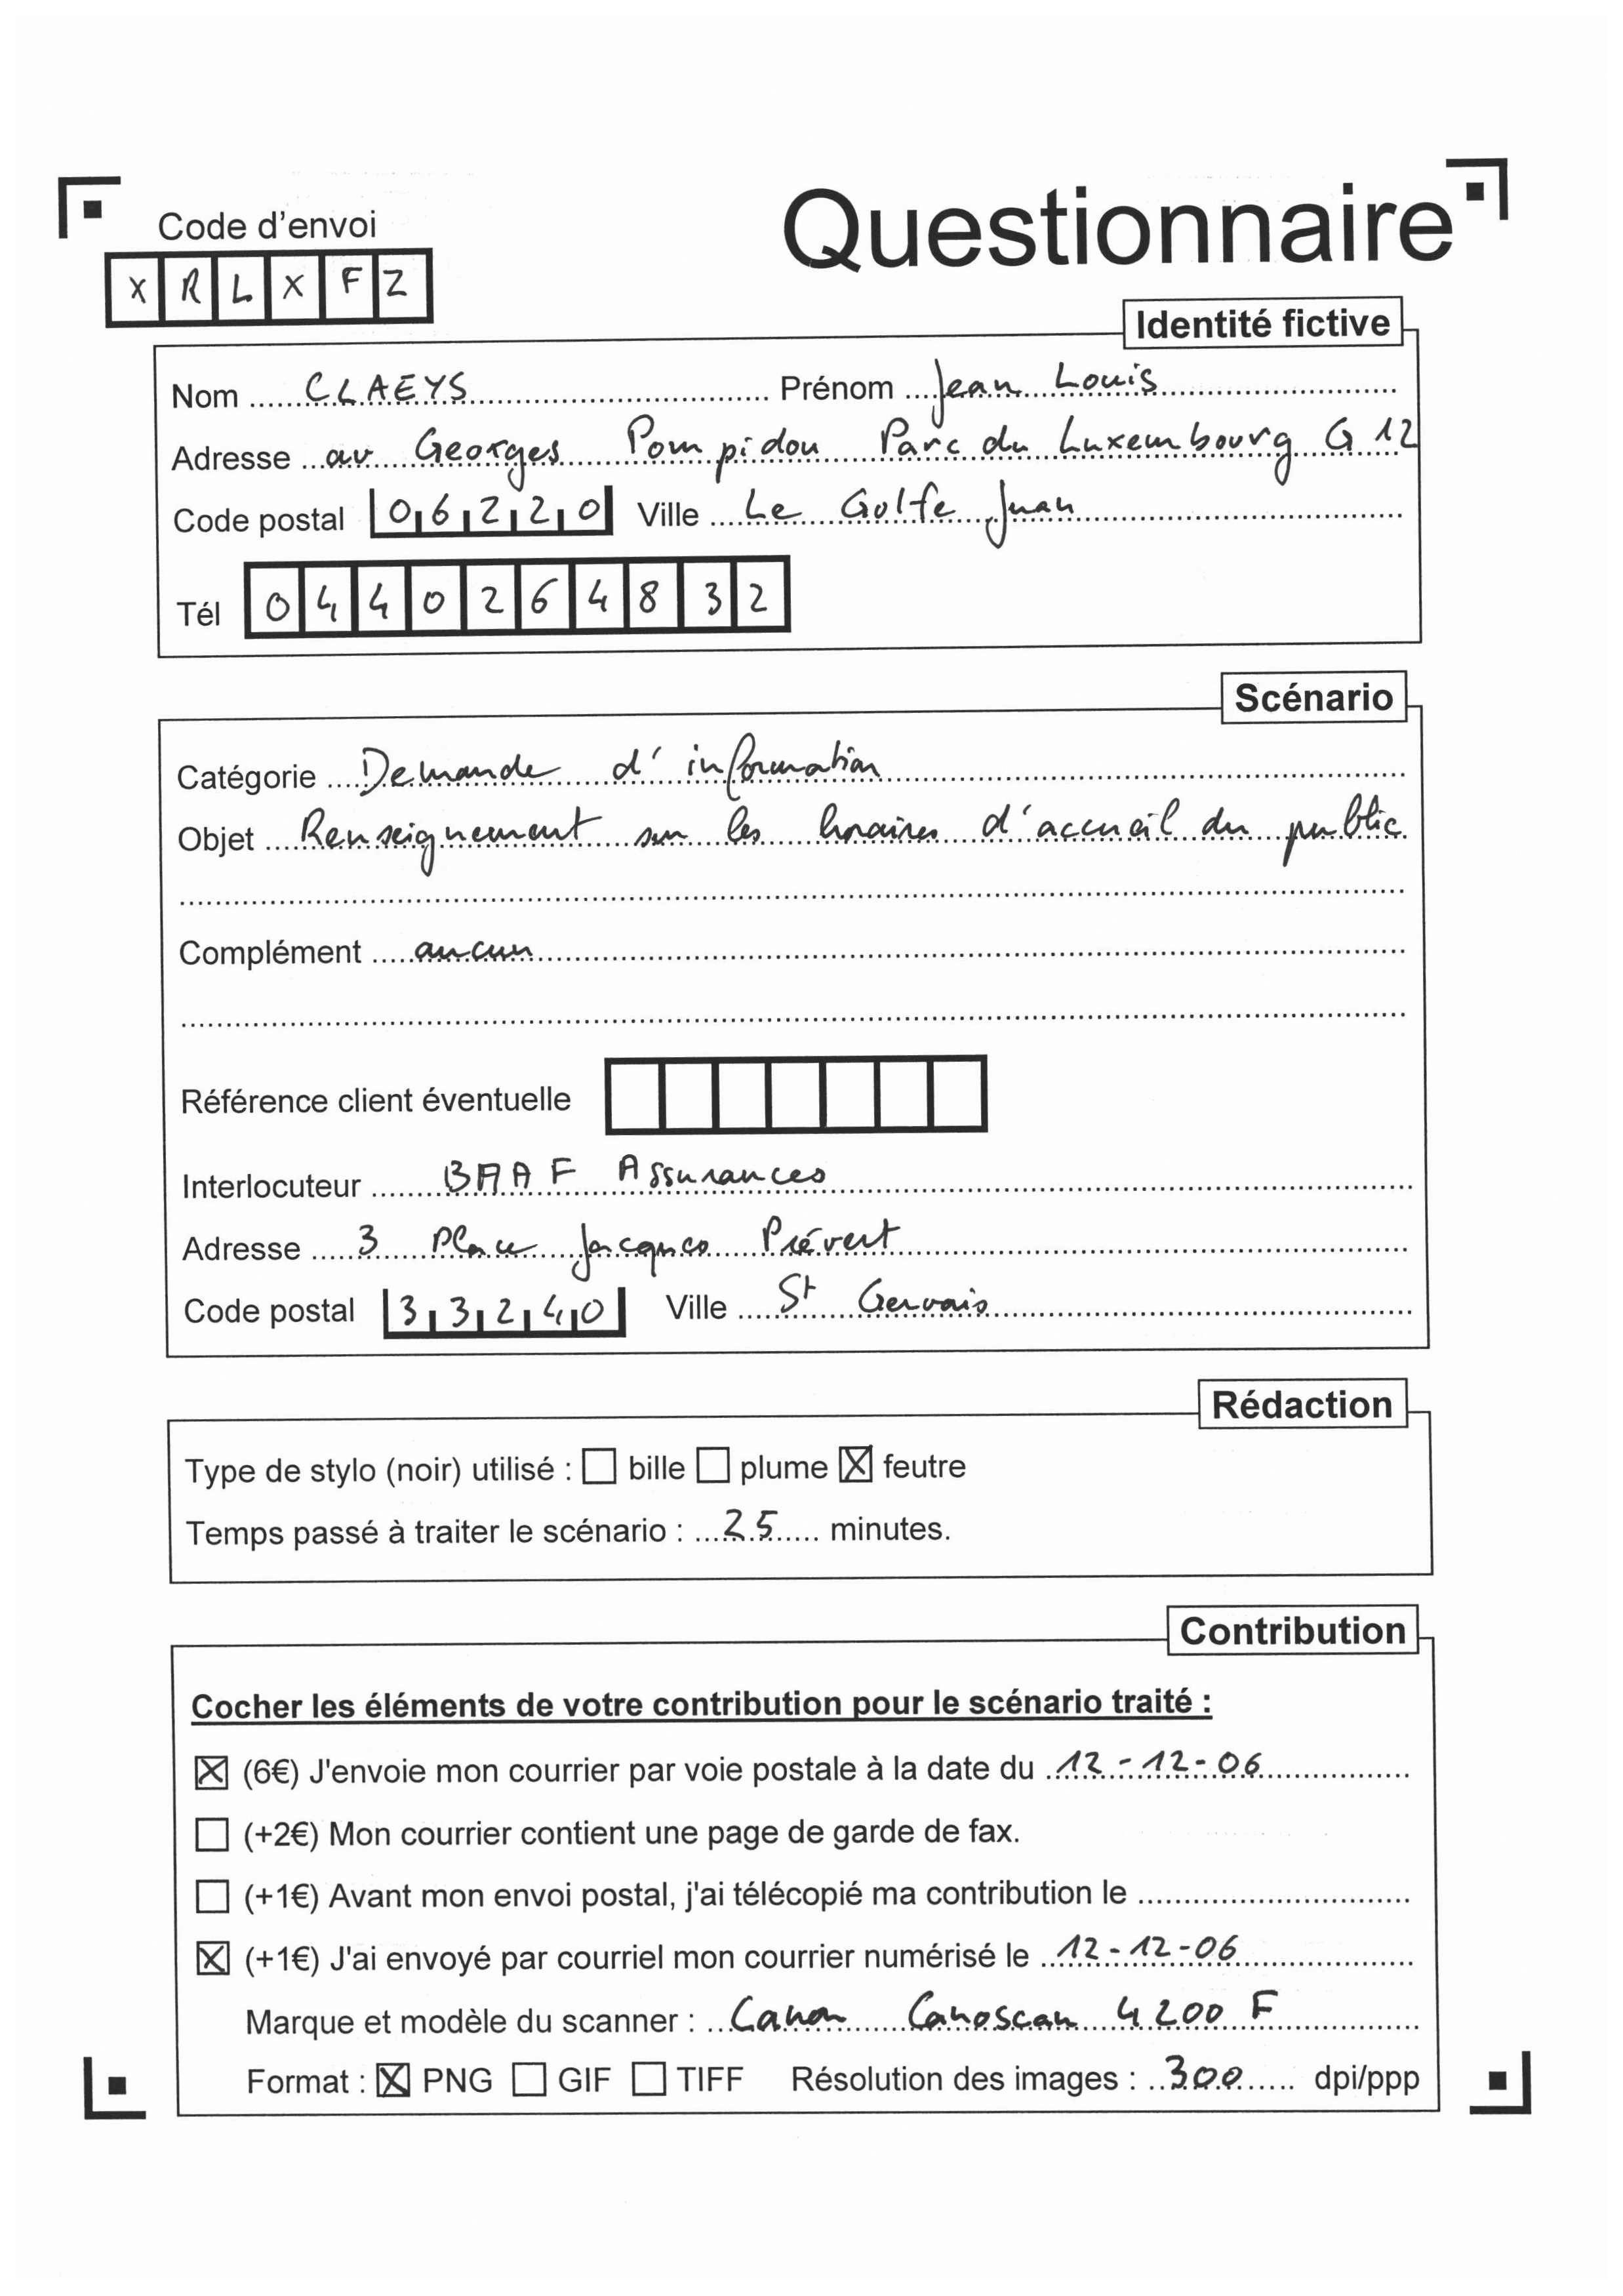 Questionnaire
Code d'envoi
X R L X F Z
Identité fictive
Nom CLAEYS Prénom Jean Louis
Adresse av Georges Pompidou Parc du Luxembourg G 12
Code postal 06220 Ville Le Golfe Juan
Tél 0440264832
Scénario
Catégorie Demande d'information
Objet Renseignement sur les horaires d'accueil du public
Complément aucun
Référence client éventuelle
Interlocuteur BAAF Assurances
Adresse 3 Place Jacques Prévert
Code postal 33240 Ville St Gervais
Rédaction
Type de stylo (noir) utilisé : ☐ bille ☐ plume ☒ feutre
Temps passé à traiter le scénario : 25 minutes.
Contribution
Cocher les éléments de votre contribution pour le scénario traité :
☒ (6€) J'envoie mon courrier par voie postale à la date du 12-12-06
☐ (+2€) Mon courrier contient une page de garde de fax.
☐ (+1€) Avant mon envoi postal, j'ai télécopié ma contribution le
☒ (+1€) J'ai envoyé par courriel mon courrier numérisé le 12-12-06
Marque et modèle du scanner : Canon Canoscan 4200 F
Format : ☒ PNG ☐ GIF ☐ TIFF Résolution des images : 300 dpi/ppp